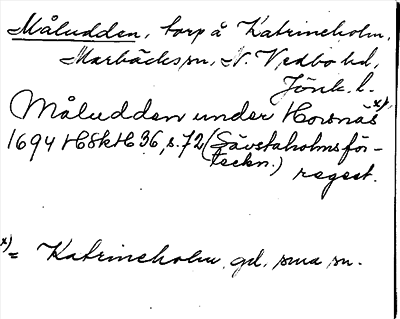 Måludden, torp å Katrineholm,
Marbäcks sn, N. Vedbo hd,
Jönk. l.
Måludden under Horsnäs x)
1694 HSkH 36, s. 72 (Sävstaholmsför-
teckn.) regest.
x) = Katrineholm, gd, sma sn.